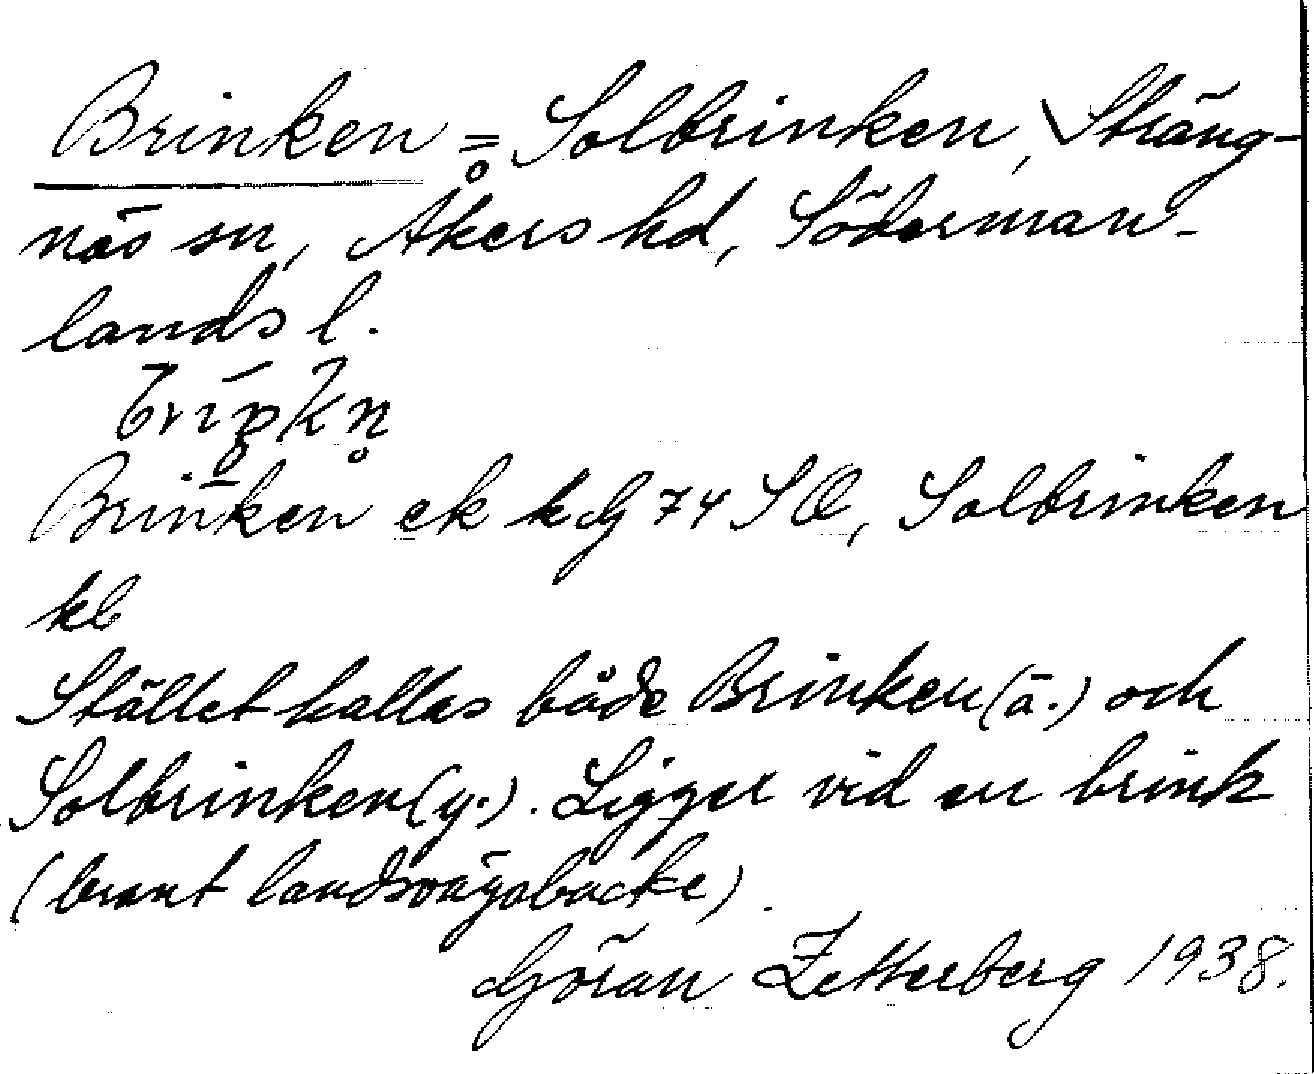 Brinken = Solbrinken, Sträng-
näs sn, Åkers hd, Söderman-
lands l.
Brinken ek kdg 74 SO, Solbrinken
kb
Stället kallas både Brinken (ä.) och
Solbrinken (y.). Ligger vid en brink
(brant landsvägsbacke).
Göran Zetterberg 1938.